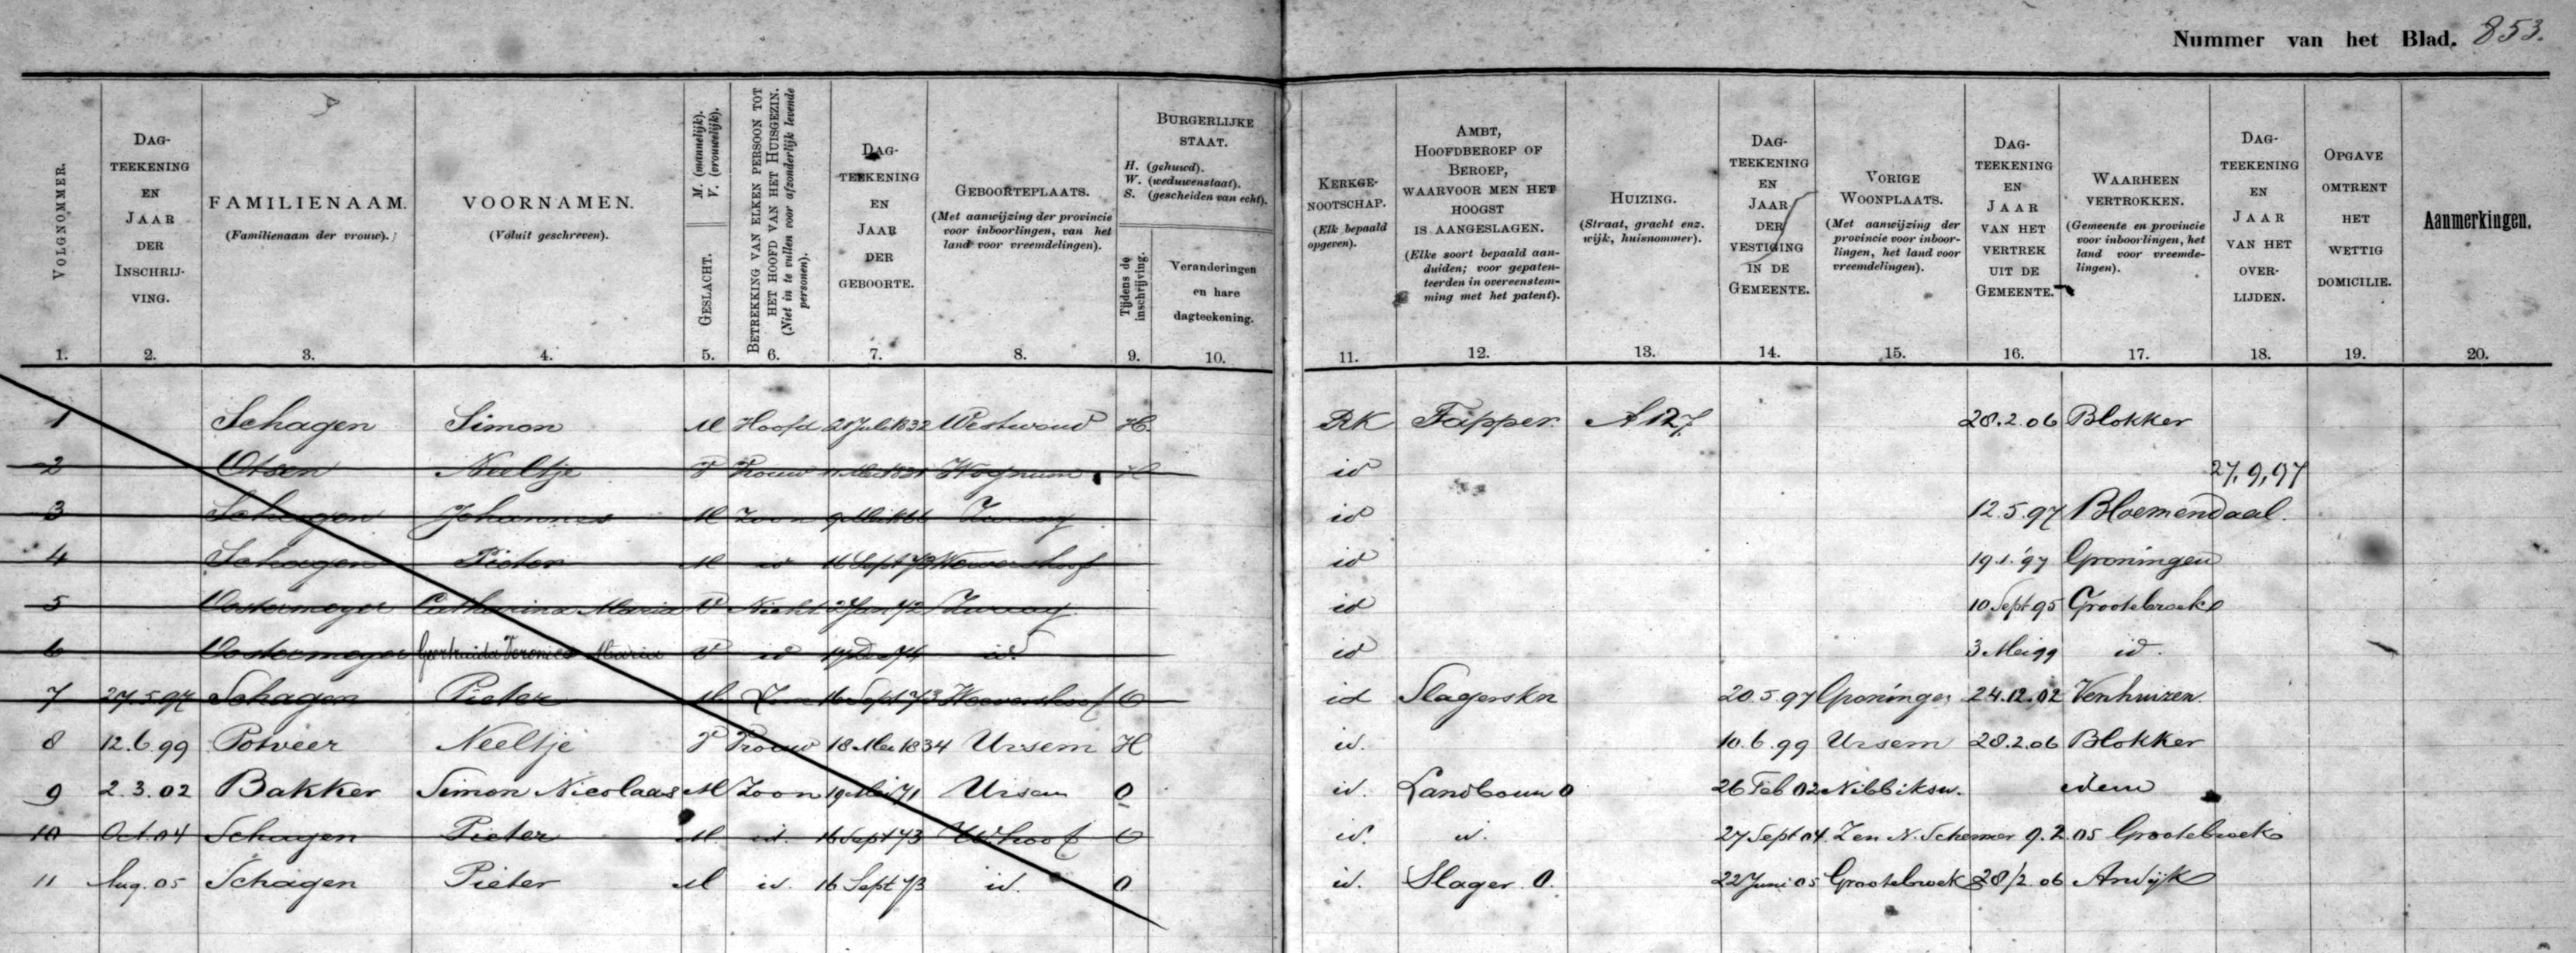 Nummer van het Blad. 853.
VOLGNOMMER. 1.
DAG-
TEEKENING
EN
JAAR
DER
INSCHRIJ-
VING.
2.
FAMILIENAAM.
(Familienaam der vrouw).
3.
VOORNAMEN.
(Voluit geschreven).
4.
GESLACHT. M. (mannelijk).
V. (vrouwelijk).
5.
BETREKKING VAN ELKEN PERSOON TOT
HET HOOFD VAN HET HUISGEZIN.
(Niet in te vullen voor afzonderlijk levende
personen).
6.
DAG-
TEEKENING
EN
JAAR
DER
GEBOORTE.
7.
GEBOORTEPLAATS.
(Met aanwijzing der provincie
voor inboorlingen, van het
land voor vreemdelingen).
8.
BURGERLIJKE
STAAT.
H. (gehuwd).
W. (weduwenstaat).
S. (gescheiden van echt).
Tijdens de
inschrijving.
9.
Veranderingen
en hare
dagteekening.
10.
KERKGE-
NOOTSCHAP.
(Elk bepaald
opgeven).
11.
AMBT,
HOOFDBEROEP OF
BEROEP,
WAARVOOR MEN HET
HOOGST
IS AANGESLAGEN.
(Elke soort bepaald aan-
duiden; voor gepaten-
teerden in overeenstem-
ming met het patent).
12.
HUIZING.
(Straat, gracht enz.
wijk, huisnommer).
13.
DAG-
TEEKENING
EN
JAAR
DER
VESTIGING
IN DE
GEMEENTE.
14.
VORIGE
WOONPLAATS.
(Met aanwijzing der
provincie voor inboor-
lingen, het land voor
vreemdelingen).
15.
DAG-
TEEKENING
EN
JAAR
VAN HET
VERTREK
UIT DE
GEMEENTE.
16.
WAARHEEN
VERTROKKEN.
(Gemeente en provincie
voor inboorlingen, het
land voor vreemde-
lingen).
17.
DAG-
TEEKENING
EN
JAAR
VAN HET
OVER-
LIJDEN.
18.
OPGAVE
OMTRENT
HET
WETTIG
DOMICILIE.
19.
Aanmerkingen.
20.
1 Schagen Simon M Hoofd Juli 1832 Westwoud H. RK Tapper A 127 28.2.06 Blokker
2 Otsen Neeltje V Vrouw Wognum H id 27,9,97
3 Schagen Johannes M Zoon 9 Zwaag id 12.5.97 Bloemendaal.
4 Schagen Pieter M id 16 Sept 73 Wervershoof id 19.1.97 Groningen
5 Oostermeyer Catharina Maria V Nicht 2 Jan 72 Zwaag id 10 Sept 95 Grootebroek
6 Oostermeyer Geertruida Veronica Maria V id id. id 3 Mei 99 id.
7 27.5.97 Schagen Pieter M. Zoon 16 Sept 73 Wervershoof O id Slagerskn 20.5.97 Groningen 24.12.02 Venhuizen.
8 12.6.99 Potveer Neeltje V Vrouw 18 Mei 1834 Ursem H id. 10.6.99 Ursem 28.2.06 Blokker
9 2.3.02 Bakker Simon Nicolaas M Zoon 19 Mei 71 Ursem O id. Landbouw O 26 Feb 02 Nibbiksw. idem
10 Oct. 04 Schagen Pieter M. id. 16 Sept 73 W.hoof O id. id. 27 Sept 04 Z en N. Schermer 9.2.05 Grootebroek
11 Aug. 05 Schagen Pieter M id. 16 Sept 73 id. O id. Slager O. 22 Juni 05 Grootebroek 28/2.06 Andijk